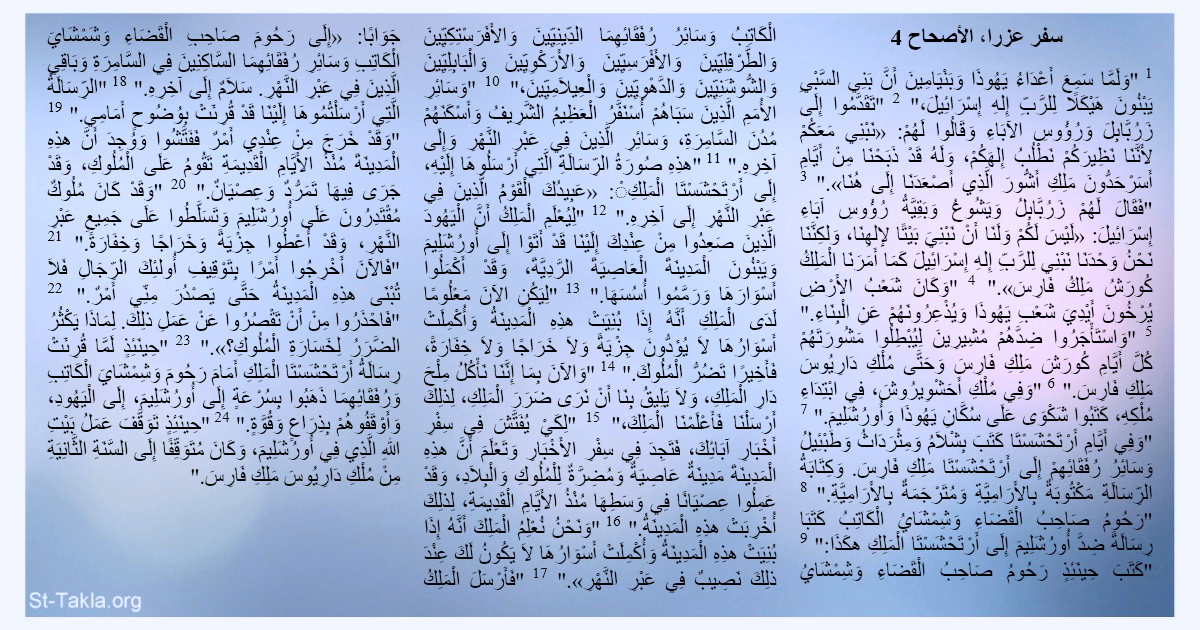 سفر عزرا، الأصحاح 4
1 "وَلَمَّا سَمِعَ أَعْدَاءُ يَهُوذَا وَبَنْيَامِينَ أَنَّ بَنِي السَّبْيِ
يَبْنُونَ هَيْكَلًا لِلرَّبِّ إِلهِ إِسْرَائِيلَ،" 2 "تَقَدَّمُوا إِلَى
زَرُبَّابِلَ وَرُؤُوسِ الآبَاءِ وَقَالُوا لَهُمْ: «نَبْنِي مَعَكُمْ
لأَنَّنَا نَظِيرَكُمْ نَطْلُبُ إِلهَكُمْ، وَلَهُ قَدْ ذَبَحْنَا مِنْ أَيَّامِ
أَسَرْحَدُّونَ مَلِكِ أَشُّورَ الَّذِي أَصْعَدَنَا إِلَى هُنَا»." 3
"فَقَالَ لَهُمْ زَرُبَّابِلُ وَيَشُوعُ وَبَقِيَّةُ رُؤُوسِ آبَاءِ
إِسْرَائِيلَ: «لَيْسَ لَكُمْ وَلَنَا أَنْ نَبْنِيَ بَيْتًا لإِلهِنَا، وَلكِنَّنَا
نَحْنُ وَحْدَنَا نَبْنِي لِلرَّبِّ إِلهِ إِسْرَائِيلَ كَمَا أَمَرَنَا الْمَلِكُ
كُورَشُ مَلِكُ فَارِسَ»." 4 "وَكَانَ شَعْبُ الأَرْضِ
يُرْخُونَ أَيْدِيَ شَعْبِ يَهُوذَا وَيُذْعِرُونَهُمْ عَنِ الْبِنَاءِ."
5 "وَاسْتَأْجَرُوا ضِدَّهُمْ مُشِيرِينَ لِيُبْطِلُوا مَشُورَتَهُمْ
كُلَّ أَيَّامِ كُورَشَ مَلِكِ فَارِسَ وَحَتَّى مُلْكِ دَارِيُوسَ
مَلِكِ فَارِسَ." 6 "وَفِي مُلْكِ أَحَشْوِيرُوشَ، فِي ابْتِدَاءِ
مُلْكِهِ، كَتَبُوا شَكْوَى عَلَى سُكَّانِ يَهُوذَا وَأُورُشَلِيمَ." 7
"وَفِي أَيَّامِ أَرْتَحْشَسْتَا كَتَبَ بِشْلاَمُ وَمِثْرَدَاثُ وَطَبْئِيلُ
وَسَائِرُ رُفَقَائِهِمْ إِلَى أَرْتَحْشَسْتَا مَلِكِ فَارِسَ. وَكِتَابَةُ
الرِّسَالَةِ مَكْتُوبَةٌ بِالأَرَامِيَّةِ وَمُتَرْجَمَةٌ بِالأَرَامِيَّةِ." 8
"رَحُومُ صَاحِبُ الْقَضَاءِ وَشِمْشَايُ الْكَاتِبُ كَتَبَا
رِسَالَةً ضِدَّ أُورُشَلِيمَ إِلَى أَرْتَحْشَسْتَا الْمَلِكِ هكَذَا:" 9
"كَتَبَ حِينَئِذٍ رَحُومُ صَاحِبُ الْقَضَاءِ وَشِمْشَايُ
الْكَاتِبُ وَسَائِرُ رُفَقَائِهِمَا الدِّينِيِّينَ وَالأَفَرَسْتِكِيِّينَ
وَالطَّرْفِلِيِّينَ وَالأَفْرِسِيِّينَ وَالأَرَكْوِيِّينَ وَالْبَابِلِيِّينَ
وَالشُّوشَنِيِّينَ وَالدَّهْوِيِّينَ وَالْعِيلاَمِيِّينَ،" 10 "وَسَائِرِ
الأُمَمِ الَّذِينَ سَبَاهُمْ أُسْنَفَّرُ الْعَظِيمُ الشَّرِيفُ وَأَسْكَنَهُمْ
مُدُنَ السَّامِرَةِ، وَسَائِرِ الَّذِينَ فِي عَبْرِ النَّهْرِ وَإِلَى
آخِرِهِ." 11 "هذِهِ صُورَةُ الرِّسَالَةِ الَّتِي أَرْسَلُوهَا إِلَيْهِ،
إِلَى أَرْتَحْشَسْتَا الْمَلِكِ: «عَبِيدُكَ الْقَوْمُ الَّذِينَ فِي
عَبْرِ النَّهْرِ إِلَى آخِرِهِ." 12 "لِيُعْلَمِ الْمَلِكُ أَنَّ الْيَهُودَ
الَّذِينَ صَعِدُوا مِنْ عِنْدِكَ إِلَيْنَا قَدْ أَتَوْا إِلَى أُورُشَلِيمَ
وَيَبْنُونَ الْمَدِينَةَ الْعَاصِيَةَ الرَّدِيَّةَ، وَقَدْ أَكْمَلُوا
أَسْوَارَهَا وَرَمَّمُوا أُسُسَهَا." 13 "لِيَكُنِ الآنَ مَعْلُومًا
لَدَى الْمَلِكِ أَنَّهُ إِذَا بُنِيَتْ هذِهِ الْمَدِينَةُ وَأُكْمِلَتْ
أَسْوَارُهَا لاَ يُؤَدُّونَ جِزْيَةً وَلاَ خَرَاجًا وَلاَ خِفَارَةً،
فَأَخِيرًا تَضُرُّ الْمُلُوكَ." 14 "وَالآنَ بِمَا إِنَّنَا نَأْكُلُ مِلْحَ
دَارِ الْمَلِكِ، وَلاَ يَلِيقُ بِنَا أَنْ نَرَى ضَرَرَ الْمَلِكِ، لِذلِكَ
أَرْسَلْنَا فَأَعْلَمْنَا الْمَلِكَ،" 15 "لِكَيْ يُفَتَّشَ فِي سِفْرِ
أَخْبَارِ آبَائِكَ، فَتَجِدَ فِي سِفْرِ الأَخْبَارِ وَتَعْلَمَ أَنَّ هذِهِ
الْمَدِينَةَ مَدِينَةٌ عَاصِيَةٌ وَمُضِرَّةٌ لِلْمُلُوكِ وَالْبِلاَدِ، وَقَدْ
عَمِلُوا عِصْيَانًا فِي وَسَطِهَا مُنْذُ الأَيَّامِ الْقَدِيمَةِ، لِذلِكَ
أُخْرِبَتْ هذِهِ الْمَدِينَةُ." 16 "وَنَحْنُ نُعْلِمُ الْمَلِكَ أَنَّهُ إِذَا
بُنِيَتْ هذِهِ الْمَدِينَةُ وَأُكْمِلَتْ أَسْوَارُهَا لاَ يَكُونُ لَكَ عِنْدَ
ذلِكَ نَصِيبٌ فِي عَبْرِ النَّهْرِ»." 17 "فَأَرْسَلَ الْمَلِكُ
جَوَابًا: «إِلَى رَحُومَ صَاحِبِ الْقَضَاءِ وَشَمْشَايَ
الْكَاتِبِ وَسَائِرِ رُفَقَائِهِمَا السَّاكِنِينَ فِي السَّامِرَةِ وَبَاقِي
الَّذِينَ فِي عَبْرِ النَّهْرِ. سَلاَمٌ إِلَى آخِرِهِ." 18 "الرِّسَالَةُ
الَّتِي أَرْسَلْتُمُوهَا إِلَيْنَا قَدْ قُرِئَتْ بِوُضُوحٍ أَمَامِي." 19
"وَقَدْ خَرَجَ مِنْ عِنْدِي أَمْرٌ فَفَتَّشُوا وَوُجِدَ أَنَّ هذِهِ
الْمَدِينَةَ مُنْذُ الأَيَّامِ الْقَدِيمَةِ تَقُومُ عَلَى الْمُلُوكِ، وَقَدْ
جَرَى فِيهَا تَمَرُّدٌ وَعِصْيَانٌ." 20 "وَقَدْ كَانَ مُلُوكٌ
مُقْتَدِرُونَ عَلَى أُورُشَلِيمَ وَتَسَلَّطُوا عَلَى جَمِيعِ عَبْرِ
النَّهْرِ، وَقَدْ أُعْطُوا جِزْيَةً وَخَرَاجًا وَخِفَارَةً." 21
"فَالآنَ أَخْرِجُوا أَمْرًا بِتَوْقِيفِ أُولئِكَ الرِّجَالِ فَلاَ
تُبْنَى هذِهِ الْمَدِينَةُ حَتَّى يَصْدُرَ مِنِّي أَمْرٌ." 22
"فَاحْذَرُوا مِنْ أَنْ تَقْصُرُوا عَنْ عَمَلِ ذلِكَ. لِمَاذَا يَكْثُرُ
الضَّرَرُ لِخَسَارَةِ الْمُلُوكِ؟»." 23 "حِينَئِذٍ لَمَّا قُرِئَتْ
رِسَالَةُ أَرْتَحْشَسْتَا الْمَلِكِ أَمَامَ رَحُومَ وَشِمْشَايَ الْكَاتِبِ
وَرُفَقَائِهِمَا ذَهَبُوا بِسُرْعَةٍ إِلَى أُورُشَلِيمَ، إِلَى الْيَهُودِ،
وَأَوْقَفُوهُمْ بِذِرَاعٍ وَقُوَّةٍ." 24 "حِينَئِذٍ تَوَقَّفَ عَمَلُ بَيْتِ
اللهِ الَّذِي فِي أُورُشَلِيمَ، وَكَانَ مُتَوَقِّفًا إِلَى السَّنَةِ الثَّانِيَةِ
مِنْ مُلْكِ دَارِيُوسَ مَلِكِ فَارِسَ."
St-Takla.org